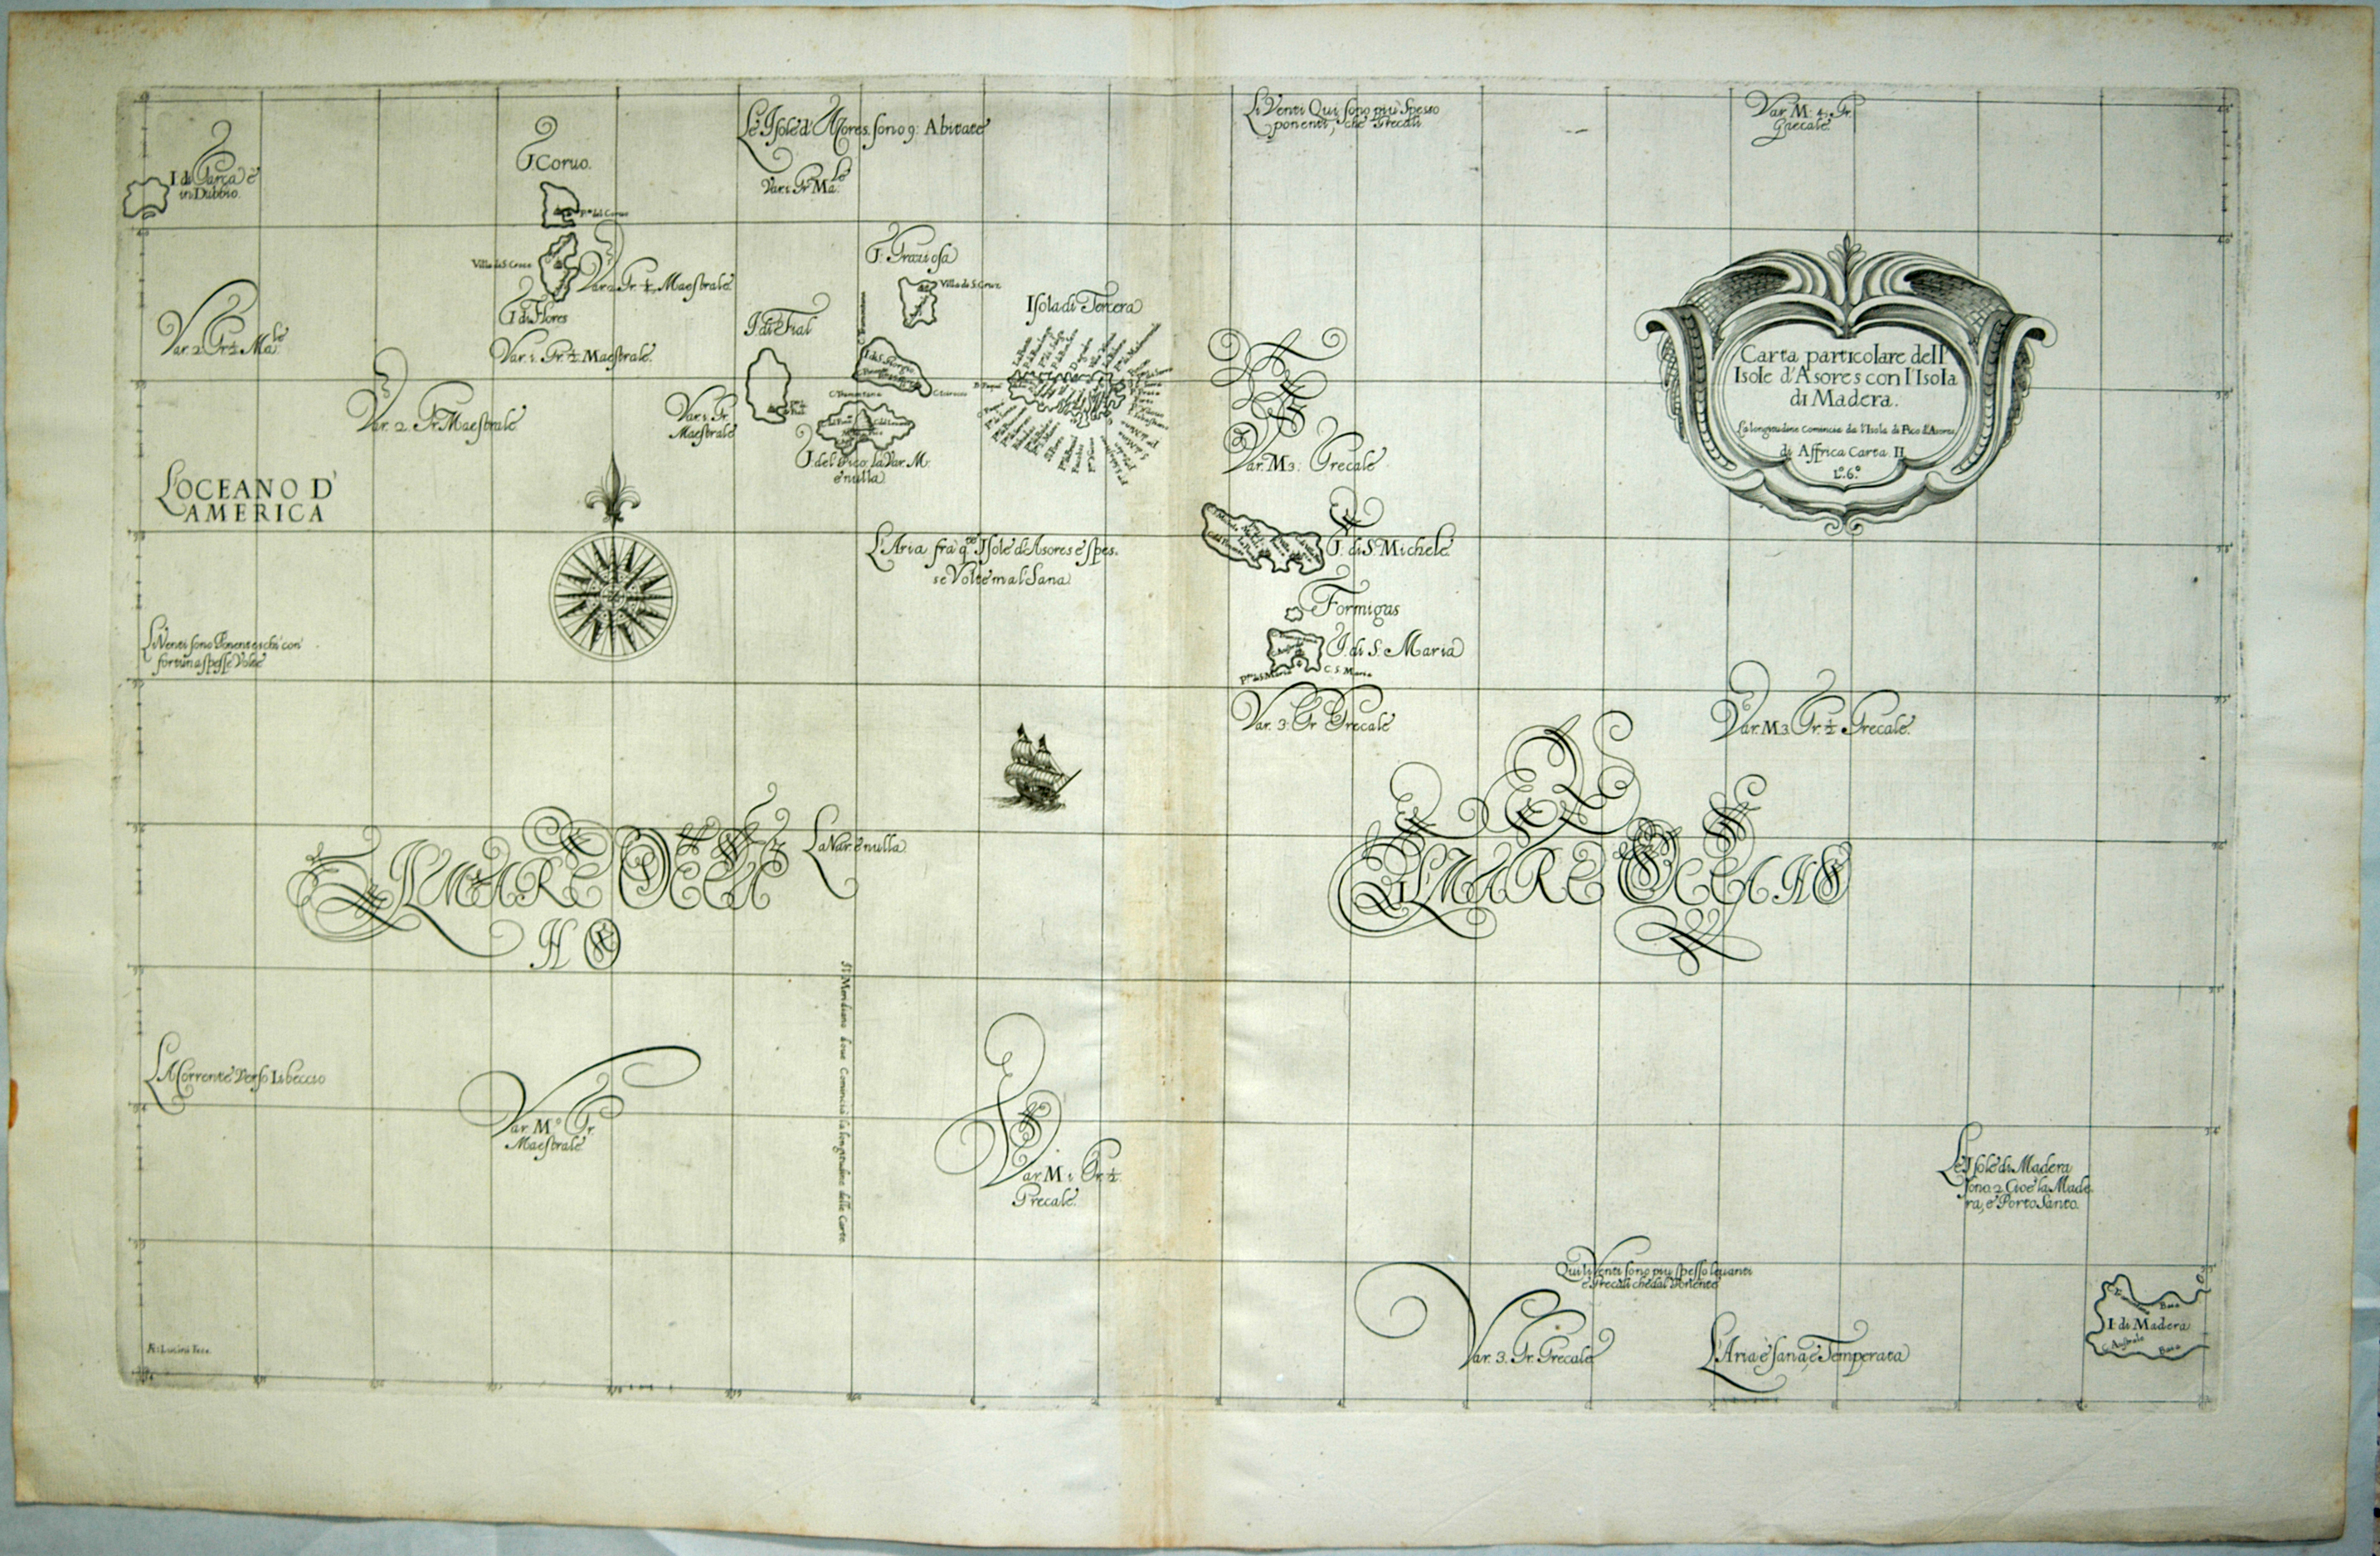 Le Isole d'Asores sono 9: Abitate
Var. 1 Gr. Ma.le
Li Venti Qui sono più spesso
ponenti, che Grecali
Var. M: 4: Gr.
Grecale
I di Garça è
in Dubbio.
I. Coruo.
P.to del Coruo
Villa de S. Croce
I di Flores
Var. 2 Gr. ½ Maestrale
Var. 1. Gr. ½ Maestrale.
Var. 2 Gr ½ Ma.le
Var. 2. Gr. Maestrale
Var. 1. Gr.
Maestrale
I. Graziosa
Villa de S. Cruz
I di Fial
C. Tramontana
I. di S. Giorgio
C. Tramontana
I. del Pico. la Var. M.
è nulla
Isola di Tercera
Var. M 3: Grecale
Carta particolare dell'
Isole d'Asores con l'Isola
di Madera.
La longitudine Comincia da l'Isola di Pico d'Asores
di Affrica Carta II
L.o 6.o
L'OCEANO D'
AMERICA
L'Aria fra q.te Isole d'Asores è spes.
se Volte mal Sana
I. di S. Michele
Formigas
I. di S. Maria
C. S. Maria
Var. 3. Gr Grecale
Var. M 3 Gr. ½ Grecale.
Li Venti sono Ponenteschi con
fortuna spesse Volte
IL MARE OCEA
NO
La Var. è nulla
IL MARE OCEANO
Il Meridiano doue Comincia la longitudine delle Carte.
La Corrente Verso Libeccio
Var. M.o Gr.
Maestrale
Var. M 1 Gr. ½
Grecale.
Le Isole di Madera
sono 2 Cioè la Made-
ra, e Porto Santo.
Qui li Venti sono più spesso leuanti
e Grecali che dal Ponente
Var. 3. Gr. Grecale
L'Aria è sana, e Temperata
I. di Madera
Baia
C. Australe
Baia
A.F. Lucini Fece.